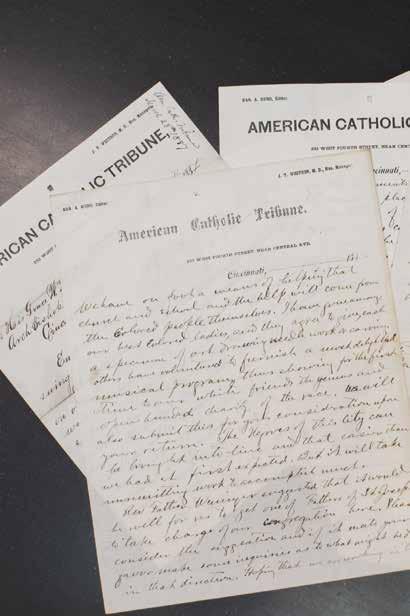 Am. Cath. Tribune
March 28th 1887
J. T. WHITSON, M. D., Bus. Manager.
AMERICAN CATHOLIC TRIBUNE,
His Grace
Arch Bishop
DAN. A. RUDD, Editor.
AMERICAN CATHOLIC
233 WEST FOURTH STREET, NEAR CENTRAL
Cincinnati,
DAN. A. RUDD, Editor.
J. T. WHITSON, M. D., Bus. Manager.
American Catholic Tribune.
233 WEST FOURTH STREET, NEAR CENTRAL AVE.
Cincinnati, 188
We have on foot a means of helping that
church and school and the help will come from
the Colored people themselves. I have
our best Colored ladies, and they agree to give each
a specimen of art drawing needle work or carving
others have volunteered to furnish a most delightful
musical program, thus showing for the first
time to our white friends the genius and
open handed charity of the race. We will
also submit this for your consideration upon
your return. The Negroes of this city can
be brought into line and that easier than
we had at first expected. But it will take
unremitting work to accomplish much.
Rev Father suggested that it would
be well for me to get one of Fathers of St Joseph
to take charge of our congregation here. Please
consider the suggestion and if it meets your
favor make some inquiries as to what might be
in that direction. Hoping that we